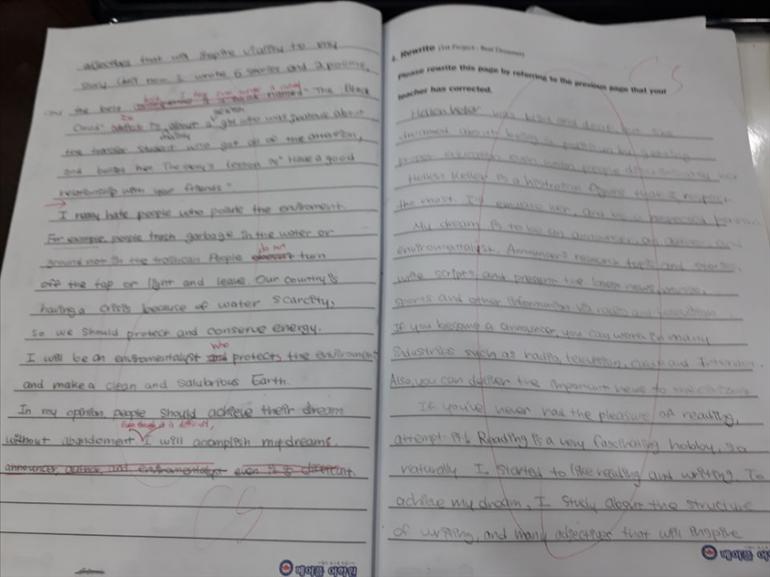 adjectives that will inspire vitality to my
story. Until now I wrote 5 stories and 2 poems,
and the best book I have ever wrote is named "The Black
Cloud" It is about a girl who will jealous about
the transfer student who got all of the attention,
and bullies her. The story's lesson is "Have a good
relationship with your friends."
I really hate people who pollute the enviroment.
For example, people trash garbage in the water or
ground not in the trashcan. People do not turn
off the tap or light and leave. Our country is
having a crisis because of water scarcity,
so we should protect and conserve energy.
I will be an enviromentalyst who protects the enviroment
and make a clean and salubrious Earth.
In my opinion, people should achieve their dream
without abandoment. Even though it is difficult, I will accomplish my dreams.
announcer, author, and enviromentalyst even it is different.
CS
메이플 어학원
2. Rewrite (1st Project - Best Dreamer)
Please rewrite this page by referring to the previous page that your
teacher has corrected.
CS
Hellen Keller was blind and deaf but she
Hellen Keller is a historical figure that I respect
the most. I'll emulate her, and be a respected person.
My dream is to be an announcer, an author and
enviromentalyst. Announcers research topics and stories,
write scripts, and present the latest news, music,
sports and other information via radio and television.
If you become a announcer, you can work in many
industries such as radio, television, and Internet.
Also, you can deliver the important news to
If you've never had the pleasure of reading,
attempt it! Reading is a very fascinating hobby, so
naturally I started to like reading and writing. To
achieve my dream, I study about the structure
of writing, and many adjectives that will inspire
메이플 어학원